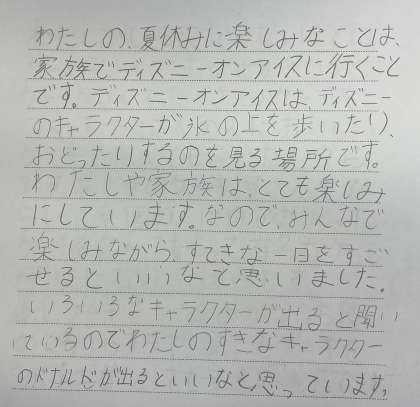 わたしの、夏休みに楽しみなことは、
家族でディズニーオンアイスに行くこと
です。ディズニーオンアイスは、ディズニー
のキャラクターが氷の上を歩いたり、
おどったりするのを見る場所です。
わたしや家族は、とても楽しみ
にしています。なので、みんなで
楽しみながら、すてきな一日をすご
せるといいなと思いました。
いろいろなキャラクターが出ると聞い
ているのでわたしのすきなキャラクター
のドナルドが出るといいなと思っています。